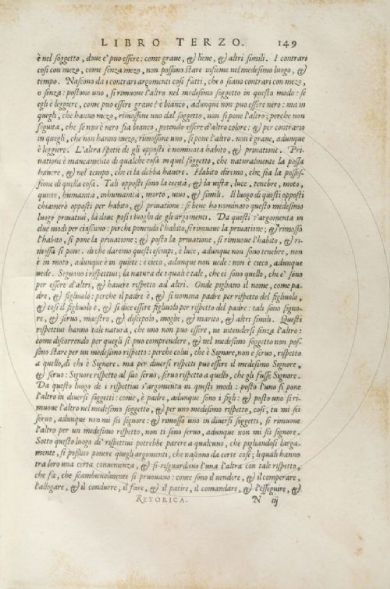 LIBRO TERZO. 149
è nel soggetto, doue e' può essere: come graue, & lieue, & altri simili. I contrari
così con mezo, come senza mezo, non possono stare insieme nel medesimo luogo, &
tempo. Nascono da i contrari argomenti così fatti, che o siano contrari con mezo,
o senza: postone uno, si rimoue l'altro nel medesimo soggetto in questo modo: se
egli è leggiere, come può essere graue? è bianco, adunque non può essere nero: ma in
quegli, che hanno mezo, rimossine uno dal soggetto, non si pone l'altro; perche non
seguita, che se non è nero sia bianco, potendo essere d'altro colore: & per contrario
in quegli, che non hanno mezo, rimossine uno, si pone l'altro. non è graue, adunque
è leggiere. L'altra spetie de gli opposti è nominata habito, & priuatione. Pri-
uatione è mancamento di qualche cosa in quel soggetto, che naturalmente la possa
hauere, & nel tempo, che ei la debba hauere. Habito diremo, che sia la posses-
sione di quella cosa. Tali opposti sono la cecità, & la uista, luce, tenebre, moto,
quiete, humanità, inhumanità, morto, uiuo, & simili. Il luogo di questi opposti
chiamerò opposti per habito, & priuatione: se bene ho nominato questo medesimo
luogo priuatiui, là doue posi i luoghi de gli argomenti. Da questi s'argomenta in
due modi per ciascuno: perche ponendo l'habito, si rimoue la priuatione; & rimosso
l'habito, si pone la priuatione; & posto la priuatione, si rimoue l'habito, & ri-
mossa si pone. di che daremo questi esempi. è luce, adunque non sono tenebre, non
è in moto, adunque è in quiete: è cieco, adunque non uede: non è cieco, adunque
uede. Seguono i respettiui; la natura de quali è tale, che ei sono quello, che e' sono
per essere d'altri, & hauere respetto ad altri. Onde pigliano il nome, come pa-
dre, & figliuolo: perche il padre è, & si nomina padre per respetto del figliuolo,
& così il figliuolo è, & si dice essere figliuolo per respetto del padre: tale sono signo-
re, & seruo, maestro, & discepolo, moglie, & marito, & altri simili. Questi
respettiui hanno tale natura, che uno non può essere, ne intendersi senza l'altro:
come discorrendo per quegli si può comprendere, & nel medesimo soggetto non pos-
sono stare per un medesimo respetto: perche colui, che è Signore, non è seruo, respetto
a quello, di chi è Signore, ma per diuersi respetti può essere il medesimo Signore,
& seruo: Signore respetto al suo seruo, seruo respetto a quello, che gli fusse Signore.
Da questo luogo de i respettiui s'argomenta in questi modi: posto l'uno si pone
l'altro in diuersi soggetti: come, è padre, adunque sono i figli: & posto uno si ri-
moue l'altro nel medesimo soggetto, & per uno medesimo respetto, così, tu mi sei
seruo, adunque non mi sei signore: & rimosso uno in diuersi soggetti, si rimoue
l'altro per un medesimo respetto, non ti sono seruo, adunque non mi sei signore.
Sotto questo luogo de' respettiui potrebbe parere a qualcuno, che pigliandosi larga-
mente, si possino ponere quegli argomenti, che nascono da certe cose; le quali hanno
tra loro una certa conuenienza, & si risguardano l'una l'altra con tale respetto,
che sia, che scambieuolmente si pruouano: come sono il uendere, & il comperare,
l'allogare, & il condurre, il fare, & il patire, il comandare, & l'esseguire, &
RETORICA. N iij